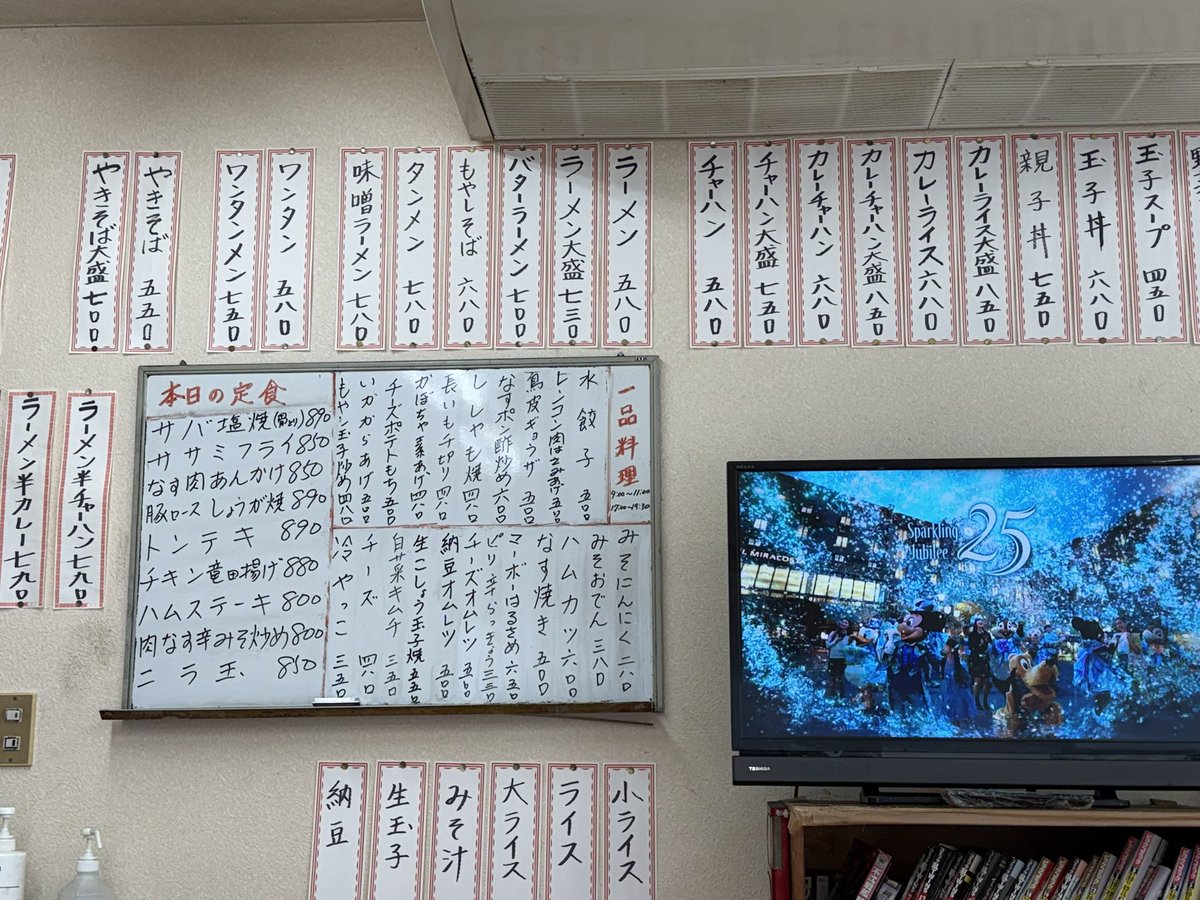 玉子スープ 四五〇
玉子丼 六八〇
親子丼 七五〇
カレーライス大盛 八五〇
カレーライス 六八〇
カレーチャーハン大盛 八五〇
カレーチャーハン 六八〇
チャーハン大盛 七五〇
チャーハン 五八〇
ラーメン 五八〇
ラーメン大盛 七三〇
バターラーメン 七〇〇
もやしそば 六八〇
タンメン 七八〇
味噌ラーメン 七八〇
ワンタン 五八〇
ワンタンメン 七五〇
やきそば 五五〇
やきそば大盛 七〇〇
ラーメン半チャーハン 七九〇
ラーメン半カレー 七九〇
本日の定食
サバ塩焼 890
ササミフライ 850
なす肉あんかけ 850
豚ロースしょうが焼 890
トンテキ 890
チキン竜田揚げ 880
ハムステーキ 800
肉なす辛みそ炒め 800
ニラ玉 850
一品料理
9:00~11:00
17:00~19:30
水餃子 五〇〇
レンコン肉はさみあげ 五〇〇
鳥皮ギョウザ 五〇〇
なすポン酢炒め 六〇〇
ししゃも焼 四八〇
長いも千切り 四八〇
かぼちゃ素あげ 四八〇
チーズポテトもち 五〇〇
いかからあげ 五〇〇
もやし玉子炒め 四八〇
みそにんにく 二八〇
みそおでん 三八〇
ハムカツ 六〇〇
なす焼き 五〇〇
マーボーはるさめ 六五〇
ピリ辛らっきょう 三三〇
チーズオムレツ 五五〇
納豆オムレツ 五五〇
生こしょう玉子焼 五五〇
白菜キムチ 三五〇
チーズ 四八〇
冷ややっこ 三五〇
小ライス
ライス
大ライス
みそ汁
生玉子
納豆
Sparkling
Jubilee
25
MIRACO
REGZA
TOSHIBA